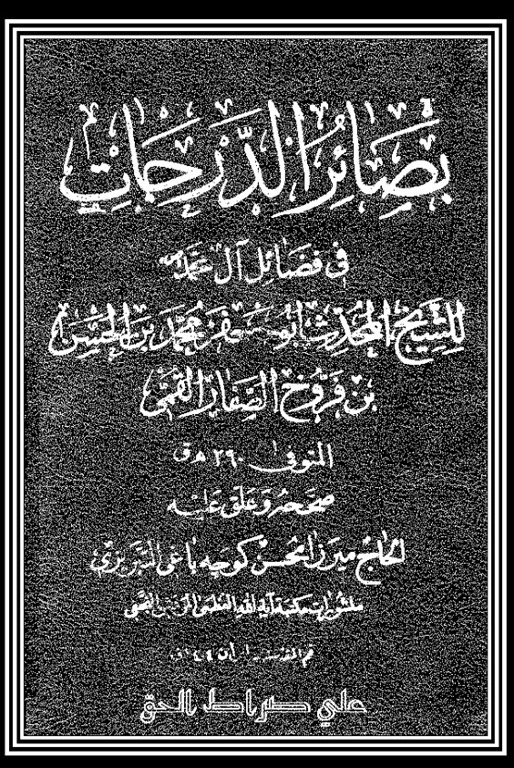 بَصَائِرُ الدَّرَجَاتِ
في فضائل آل محمد
للشيخ المحدث ابو جعفر محمد بن الحسن
بن فروخ الصفار القمي
المتوفى ٢٩٠ هـ ق
صححه وعلق عليه
الحاج ميرزا محسن كوچه باغي التبريزي
منشورات مكتبة آية الله العظمى المرعشي النجفي
قم المقدسة ايران
علي صراط الحق